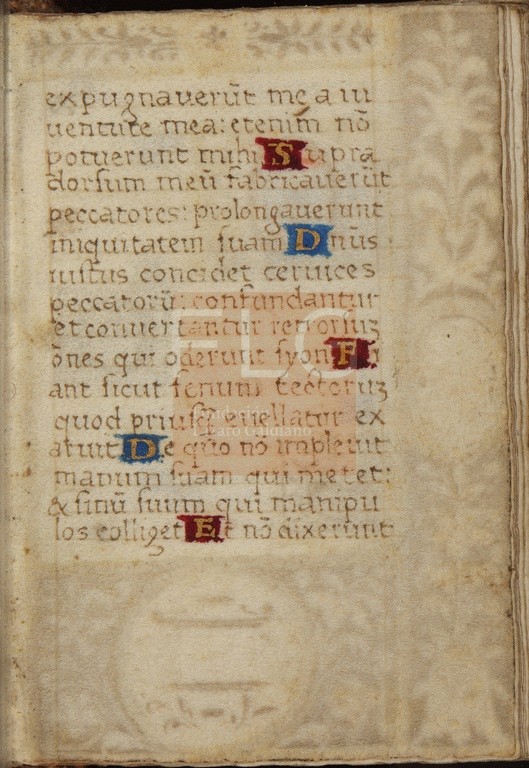 expugnauerūt me a iu
uentute mea: etenim nō
potuerunt mihi Supra
dorsum meū fabricauerūt
peccatores: prolongauerunt
iniquitatem suam Dnūs
iustus concidet ceruices
peccatorū: confundantur
et conuertantur retrorsuꝫ
ōnes qui oderunt syon Fi
ant sicut fenum tectoruꝫ
quod priusꝗ̄ euellatur ex
aruit De quo nō impleuit
manum suam qui metet:
& sinū suum qui manipu
los colliget Et nō dixerunt
FLG
Lázaro Galdiano